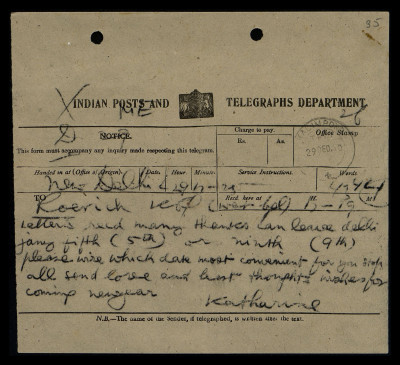 35
X INDIAN POSTS AND TELEGRAPHS DEPARTMENT.
26
NOTICE.
This form must accompany any inquiry made respecting this telegram.
Charge to pay.
Rs. As.
Office Stamp
29 DEC
Handed in at (Office of Origin). Date. Hour. Minute. Service Instructions. Words.
New Delhi
TO
Recd here at H. M.
Roerich
letters recd many thanks can leave delhi
jany fifth (5th) or ninth (9th)
please wire which date most convenient for you stop
all send love and best thoughts wishes for
coming newyear
Katharine
N.B.—The name of the Sender, if telegraphed, is written after the text.